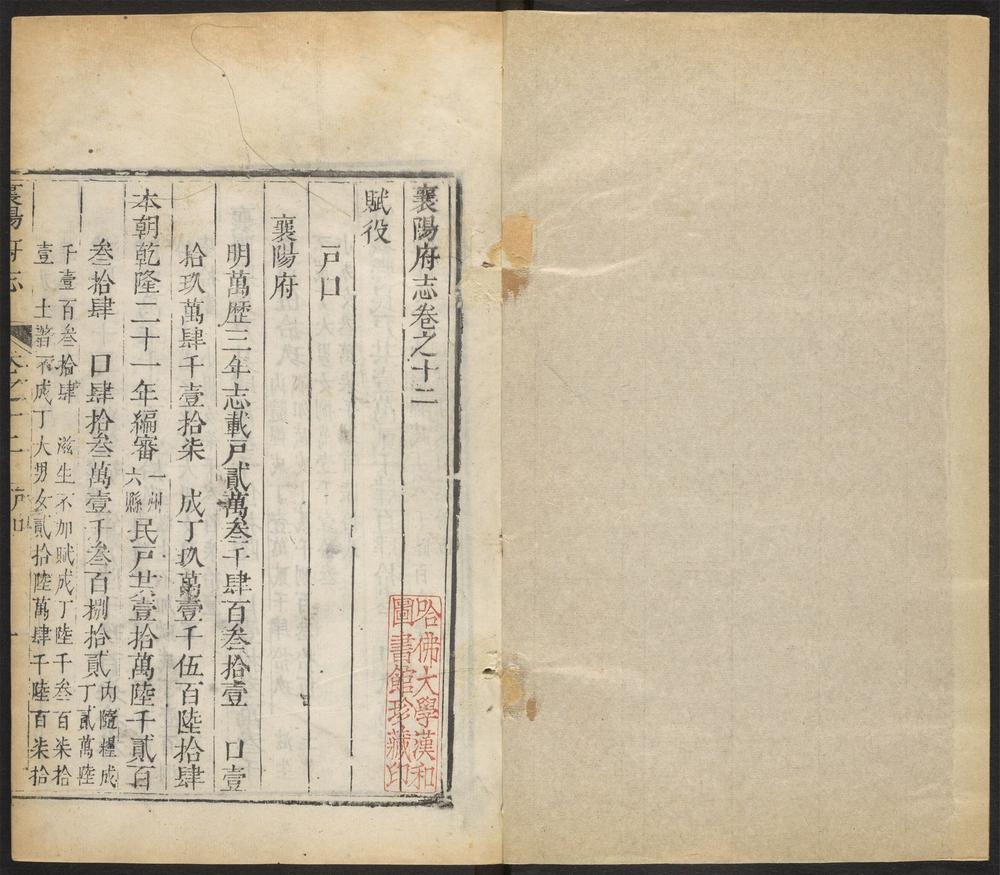 襄陽府志卷之十二
賦役
戶口
襄陽府
明萬歷三年志載戶貳萬叁千肆百叁拾壹 口壹
拾玖萬肆千壹拾柒 成丁玖萬壹千伍百陸拾肆
本朝乾隆二十一年編審一州六縣民戶共壹拾萬陸千貳百
叁拾肆 口肆拾叁萬壹千叁百捌拾貳內隨糧成丁貳萬陸
千壹百叁拾肆 滋生不加賦成丁陸千叁百柒拾
壹 土著不成丁大男女貳拾陸萬肆千陸百柒拾
襄陽府志 卷之十二 戶口 一
哈佛大學漢和
圖書館珍藏印